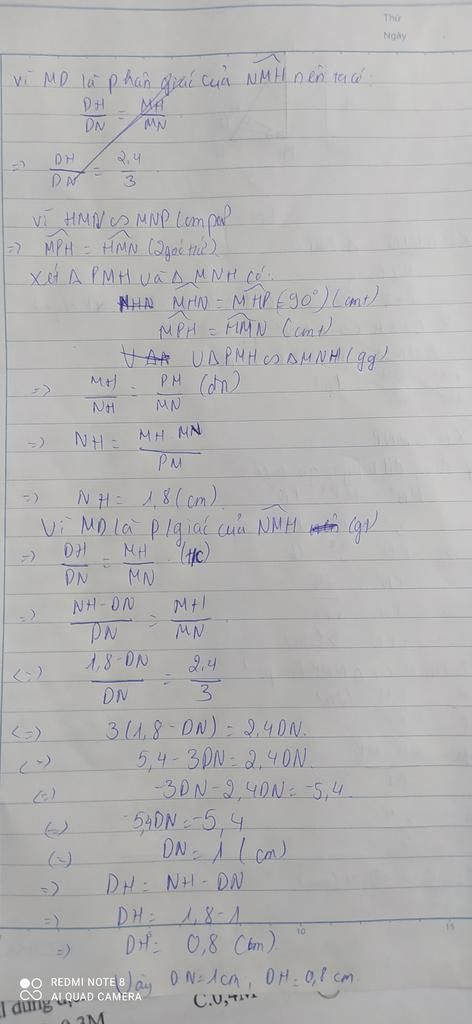 Thứ
Ngày
Vì MD là phân giác của NMH nên ta có:
DH/DN = MH/MN
=> DH/DN = 2,4/3
Vì HMN ∽ MNP (cmp)
=> MPH = HMN (2 góc t/ứ)
Xét Δ PMH và Δ MNH có:
MHN = MHP (=90°) (cmt)
MPH = HMN (cmt)
ΔPMH ∽ ΔMNH (gg)
=> MH/NH = PM/MN (đn)
=> NH = MH MN/PM
=> NH = 1,8 (cm)
Vì MD là p/giác của NMH (gt)
=> DH/DN = MH/MN (t/c)
=> NH-DN/DN = MH/MN
<=> 1,8-DN/DN = 2,4/3
<=> 3(1,8-DN) = 2,4DN.
<=> 5,4-3DN = 2,4DN.
<=> -3DN-2,4DN = -5,4.
<=> -5,4DN = -5,4
<=> DN = 1 (cm)
=> DH = NH - DN
=> DH = 1,8-1
=> DH = 0,8 (cm)
Vậy DN = 1cm, DH = 0,8 cm.
5 10 15
REDMI NOTE 8
AI QUAD CAMERA
dung
C.0,4M
0,3M